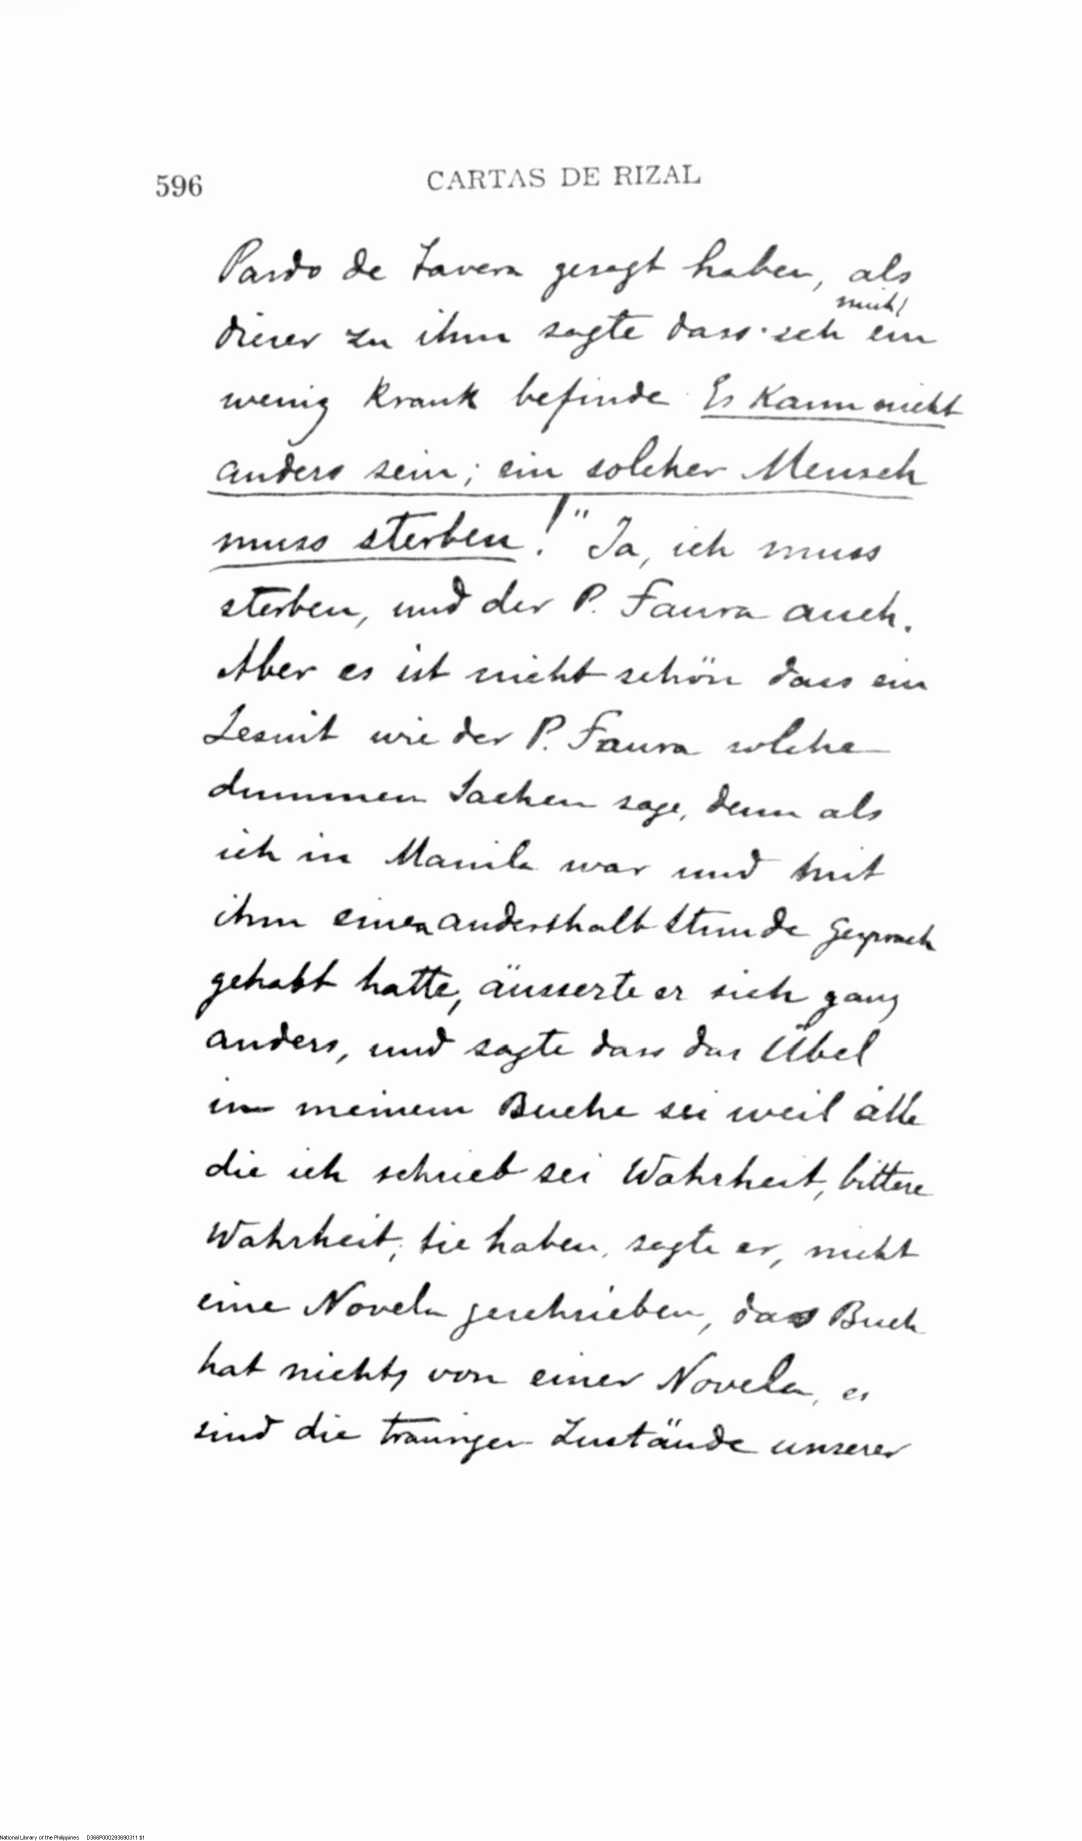 596 CARTAS DE RIZAL
Pardo de Tavera gesagt haben, als
mich
dieser zu ihm sagte dass ich ein
wenig krank befinde Es kann nicht
anders sein; ein solcher Mensch
muss sterben!" Ja, ich muss
sterben, und der P. Faura auch.
Aber es ist nicht schön dass ein
Jesuit wie der P. Faura solche
dummen Sachen sage, denn als
ich in Manila war und mit
ihm einen anderthalb Stunde Gesprach
gehabt hatte, äusserte er sich ganz
anders, und sagte dass das Übel
in meinem Buche sei weil alle
die ich schrieb sei Wahrheit, bittere
Wahrheit; Sie haben, sagte er, nicht
eine Novela geschrieben, das Buch
hat nichts von einer Novela, es
sind die trauriger Zustände unserer
National Library of the Philippines